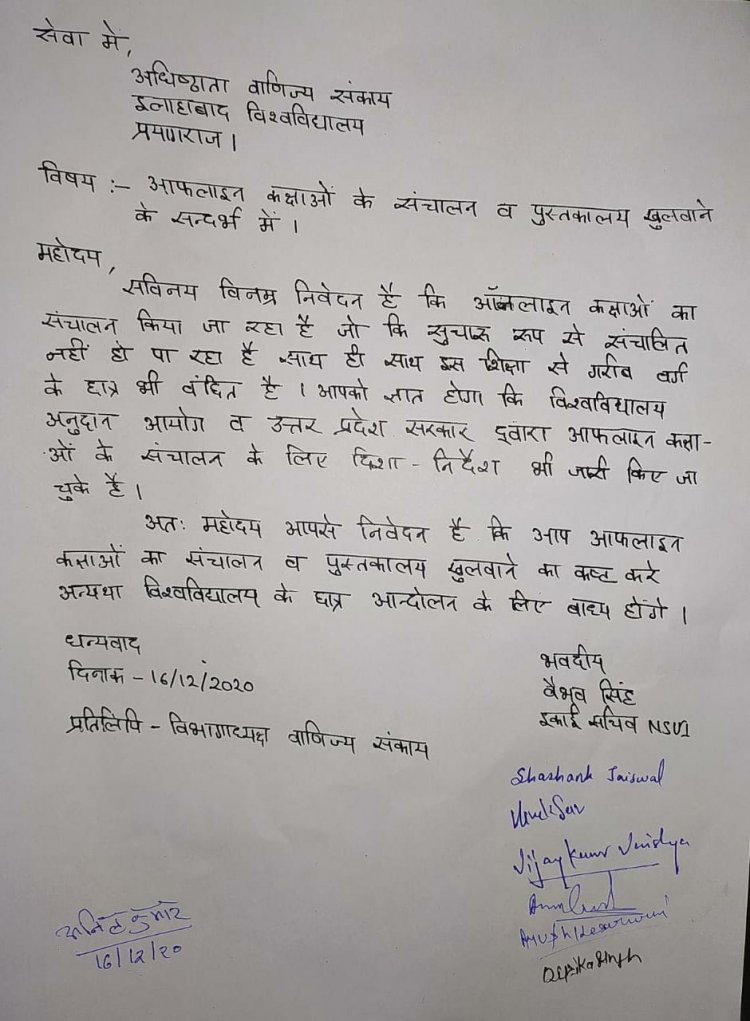 सेवा में,
अधिष्ठाता वाणिज्य संकाय
इलाहाबाद विश्वविद्यालय
प्रयागराज।
विषय :- आफलाइन कक्षाओं के संचालन व पुस्तकालय खुलवाने
के सन्दर्भ में।
महोदय,
सविनय विनम्र निवेदन है कि ऑनलाइन कक्षाओं का
संचालन किया जा रहा है जो कि सुचारू रूप से संचालित
नहीं हो पा रहा है साथ ही साथ इस शिक्षा से गरीब वर्ग
के छात्र भी वंचित है। आपको ज्ञात होगा कि विश्वविद्यालय
अनुदान आयोग व उत्तर प्रदेश सरकार द्वारा आफलाइन कक्षा-
ओं के संचालन के लिए दिशा-निर्देश भी जारी किए जा
चुके है।
अतः महोदय आपसे निवेदन है कि आप आफलाइन
कक्षाओं का संचालन व पुस्तकालय खुलवाने का कष्ट करे
अन्यथा विश्वविद्यालय के छात्र आन्दोलन के लिए बाध्य होंगे।
धन्यवाद
दिनाक - 16/12/2020
भवदीय
वैभव सिंह
इकाई सचिव NSUI
प्रतिलिपि - विभागाध्यक्ष वाणिज्य संकाय
Shashank Jaiswal
Vijay Kumar
Deepika Singh
अनिल कुमार
16/12/20